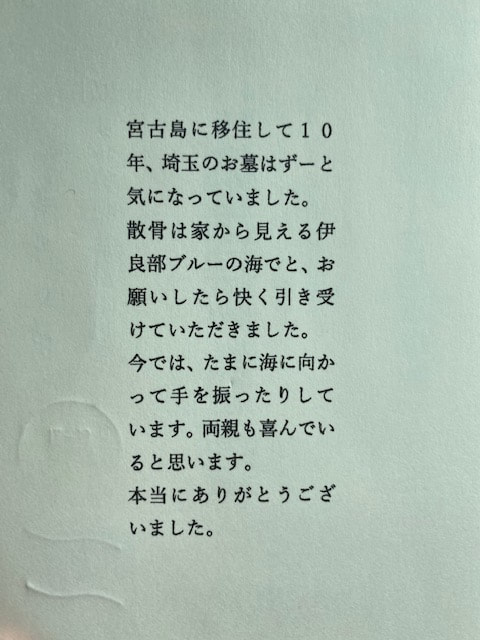 宮古島に移住して１０
年、埼玉のお墓はずーと
気になっていました。
散骨は家から見える伊
良部ブルーの海でと、お
願いしたら快く引き受
けていただきました。
今では、たまに海に向か
って手を振ったりして
います。両親も喜んでい
ると思います。
本当にありがとうござ
いました。